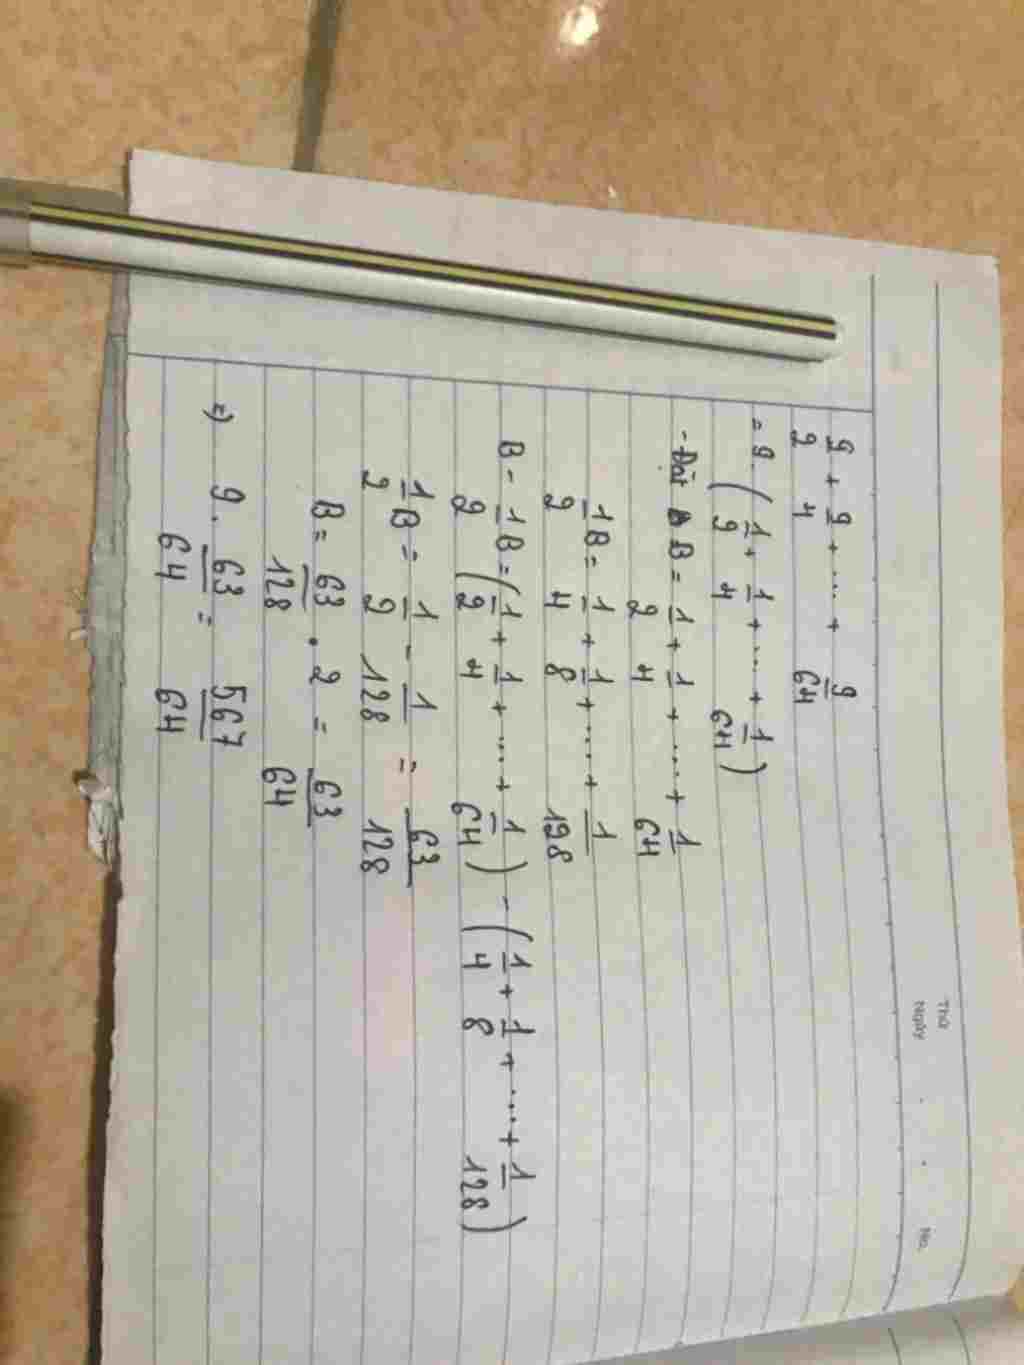 Thứ
Ngày . . No.
9/2 + 9/4 + ... + 9/64
= 9. (1/2 + 1/4 + ... + 1/64)
- Đặt B = 1/2 + 1/4 + ... + 1/64
1/2 B = 1/4 + 1/8 + ... + 1/128
B - 1/2 B = (1/2 + 1/4 + ... + 1/64) - (1/4 + 1/8 + ... + 1/128)
1/2 B = 1/2 - 1/128 = 63/128
B = 63/128 . 2 = 63/64
=) 9 . 63/64 = 567/64